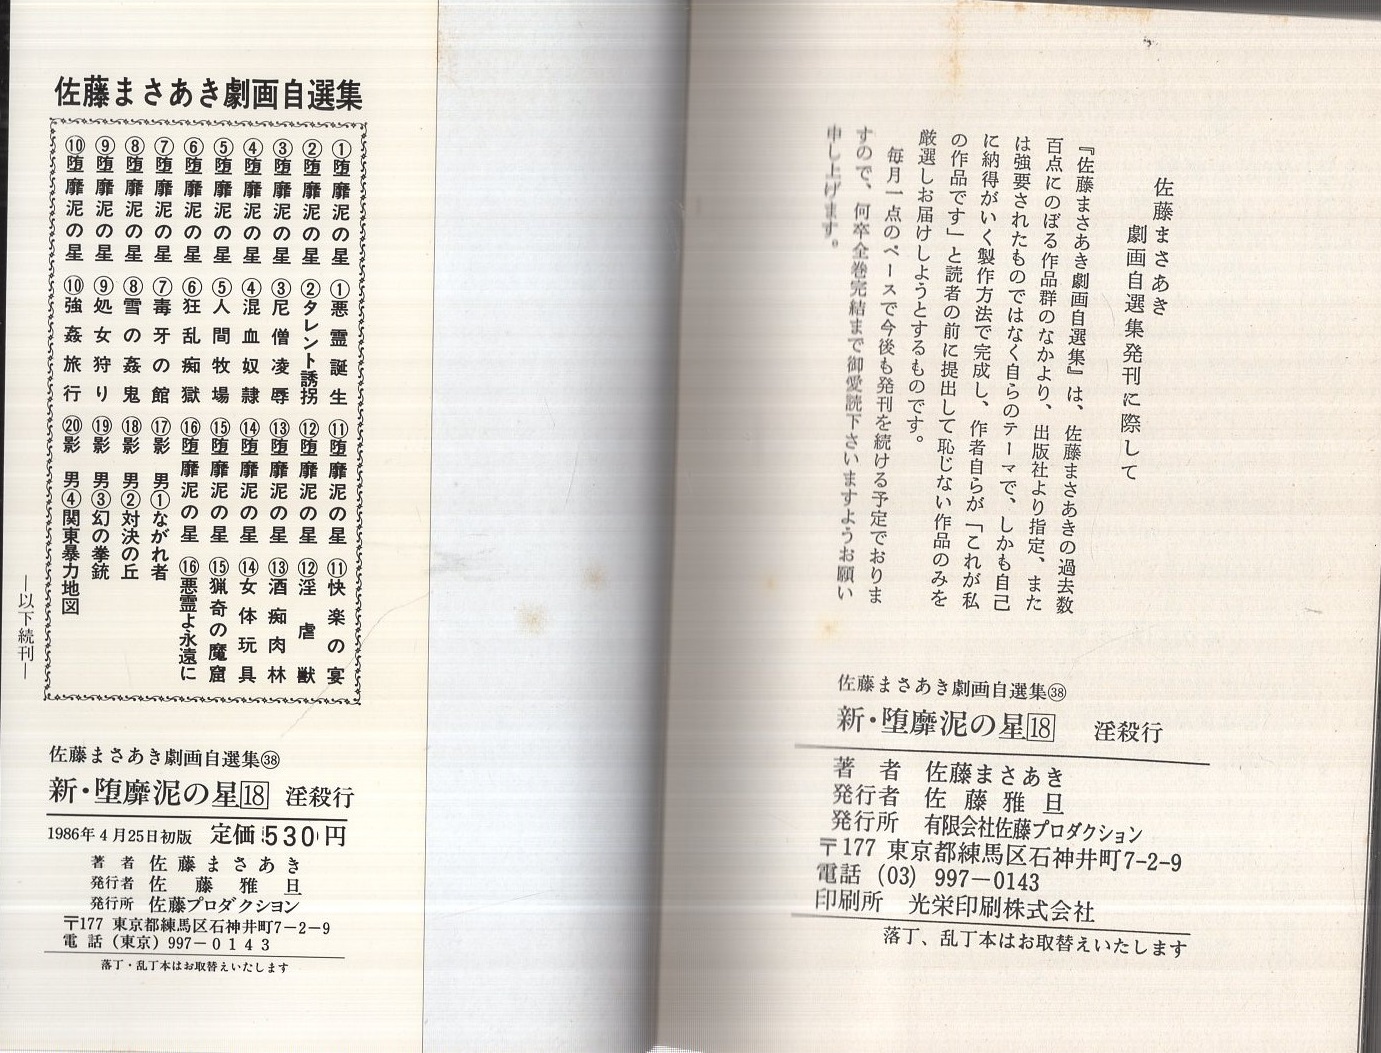 佐藤まさあき劇画自選集
①堕靡泥の星 ①悪霊誕生
②堕靡泥の星 ②タレント誘拐
③堕靡泥の星 ③尼僧凌辱
④堕靡泥の星 ④混血奴隷
⑤堕靡泥の星 ⑤人間牧場
⑥堕靡泥の星 ⑥狂乱痴獄
⑦堕靡泥の星 ⑦毒牙の館
⑧堕靡泥の星 ⑧雪の姦鬼
⑨堕靡泥の星 ⑨処女狩り
⑩堕靡泥の星 ⑩強姦旅行
⑪堕靡泥の星 ⑪快楽の宴
⑫堕靡泥の星 ⑫淫虐獣
⑬堕靡泥の星 ⑬酒痴肉林
⑭堕靡泥の星 ⑭女体玩具
⑮堕靡泥の星 ⑮猟奇の魔窟
⑯堕靡泥の星 ⑯悪霊よ永遠に
⑰影 男①ながれ者
⑱影 男②対決の丘
⑲影 男③幻の拳銃
⑳影 男④関東暴力地図
―以下続刊―
佐藤まさあき劇画自選集㊳
新・堕靡泥の星18 淫殺行
1986年4月25日初版 定価530円
著者 佐藤まさあき
発行者 佐藤雅旦
発行所 佐藤プロダクション
〒177 東京都練馬区石神井町7-2-9
電話(東京)997-0143
落丁・乱丁本はお取替えいたします
佐藤まさあき
劇画自選集発刊に際して
『佐藤まさあき劇画自選集』は、佐藤まさあきの過去数
百点にのぼる作品群のなかより、出版社より指定、また
は強要されたものではなく自らのテーマで、しかも自己
に納得がいく製作方法で完成し、作者自らが「これが私
の作品です」と読者の前に提出して恥じない作品のみを
厳選しお届けしようとするものです。
毎月一点のペースで今後も発刊を続ける予定でおりま
すので、何卒全巻完結まで御愛読下さいますようお願い
申し上げます。
佐藤まさあき劇画自選集㊳
新・堕靡泥の星18 淫殺行
著者 佐藤まさあき
発行者 佐藤雅旦
発行所 有限会社佐藤プロダクション
〒177 東京都練馬区石神井町7-2-9
電話 (03) 997―0143
印刷所 光栄印刷株式会社
落丁、乱丁本はお取替えいたします